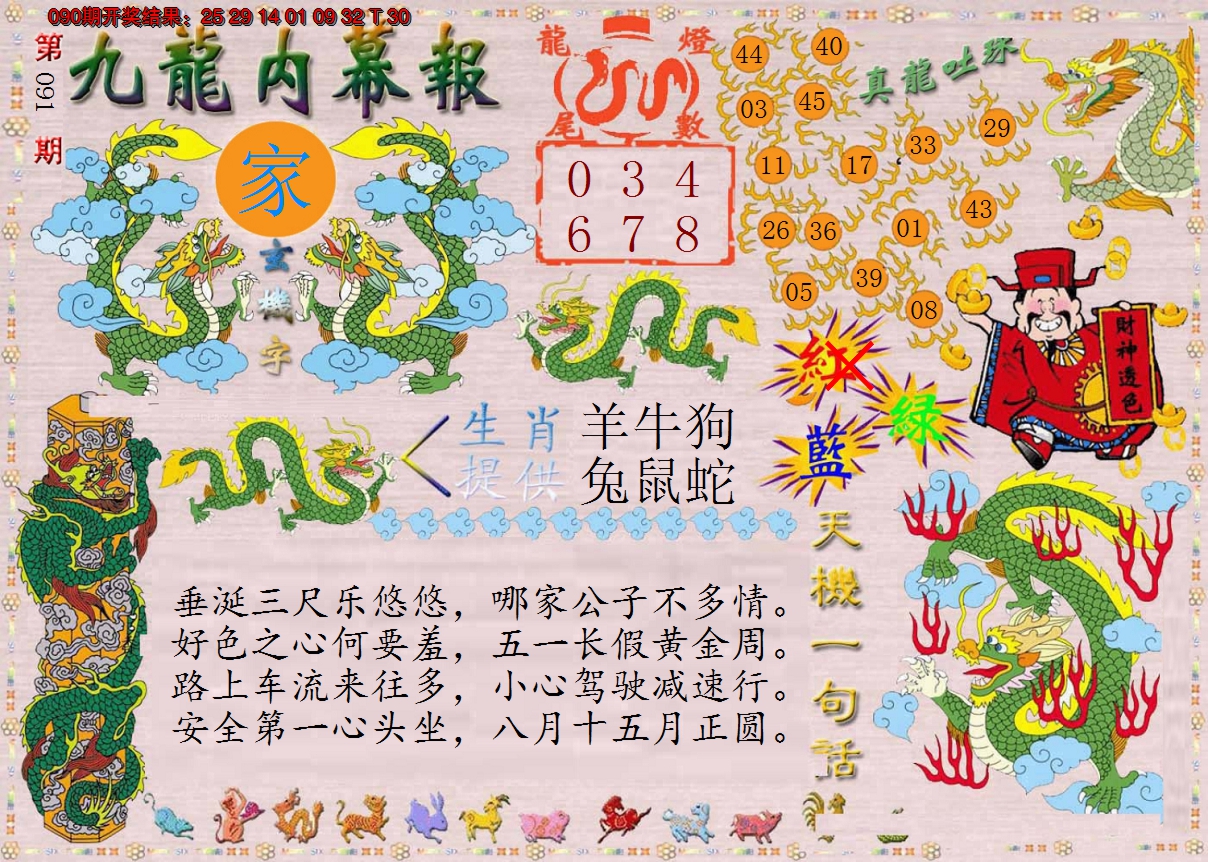 090期开奖结果：25 29 14 01 09 32 T 30
第091期
九龍内幕報
家
玄機字
龍燈
尾數
0 3 4
6 7 8
真龍吐珠
44
40
03
45
33
29
11
17
43
26
36
01
39
05
08
財神透色
紅
綠
藍
生肖
提供
羊牛狗
兔鼠蛇
天機一句话
垂涎三尺乐悠悠，哪家公子不多情。
好色之心何要羞，五一长假黄金周。
路上车流来往多，小心驾驶减速行。
安全第一心头坐，八月十五月正圆。